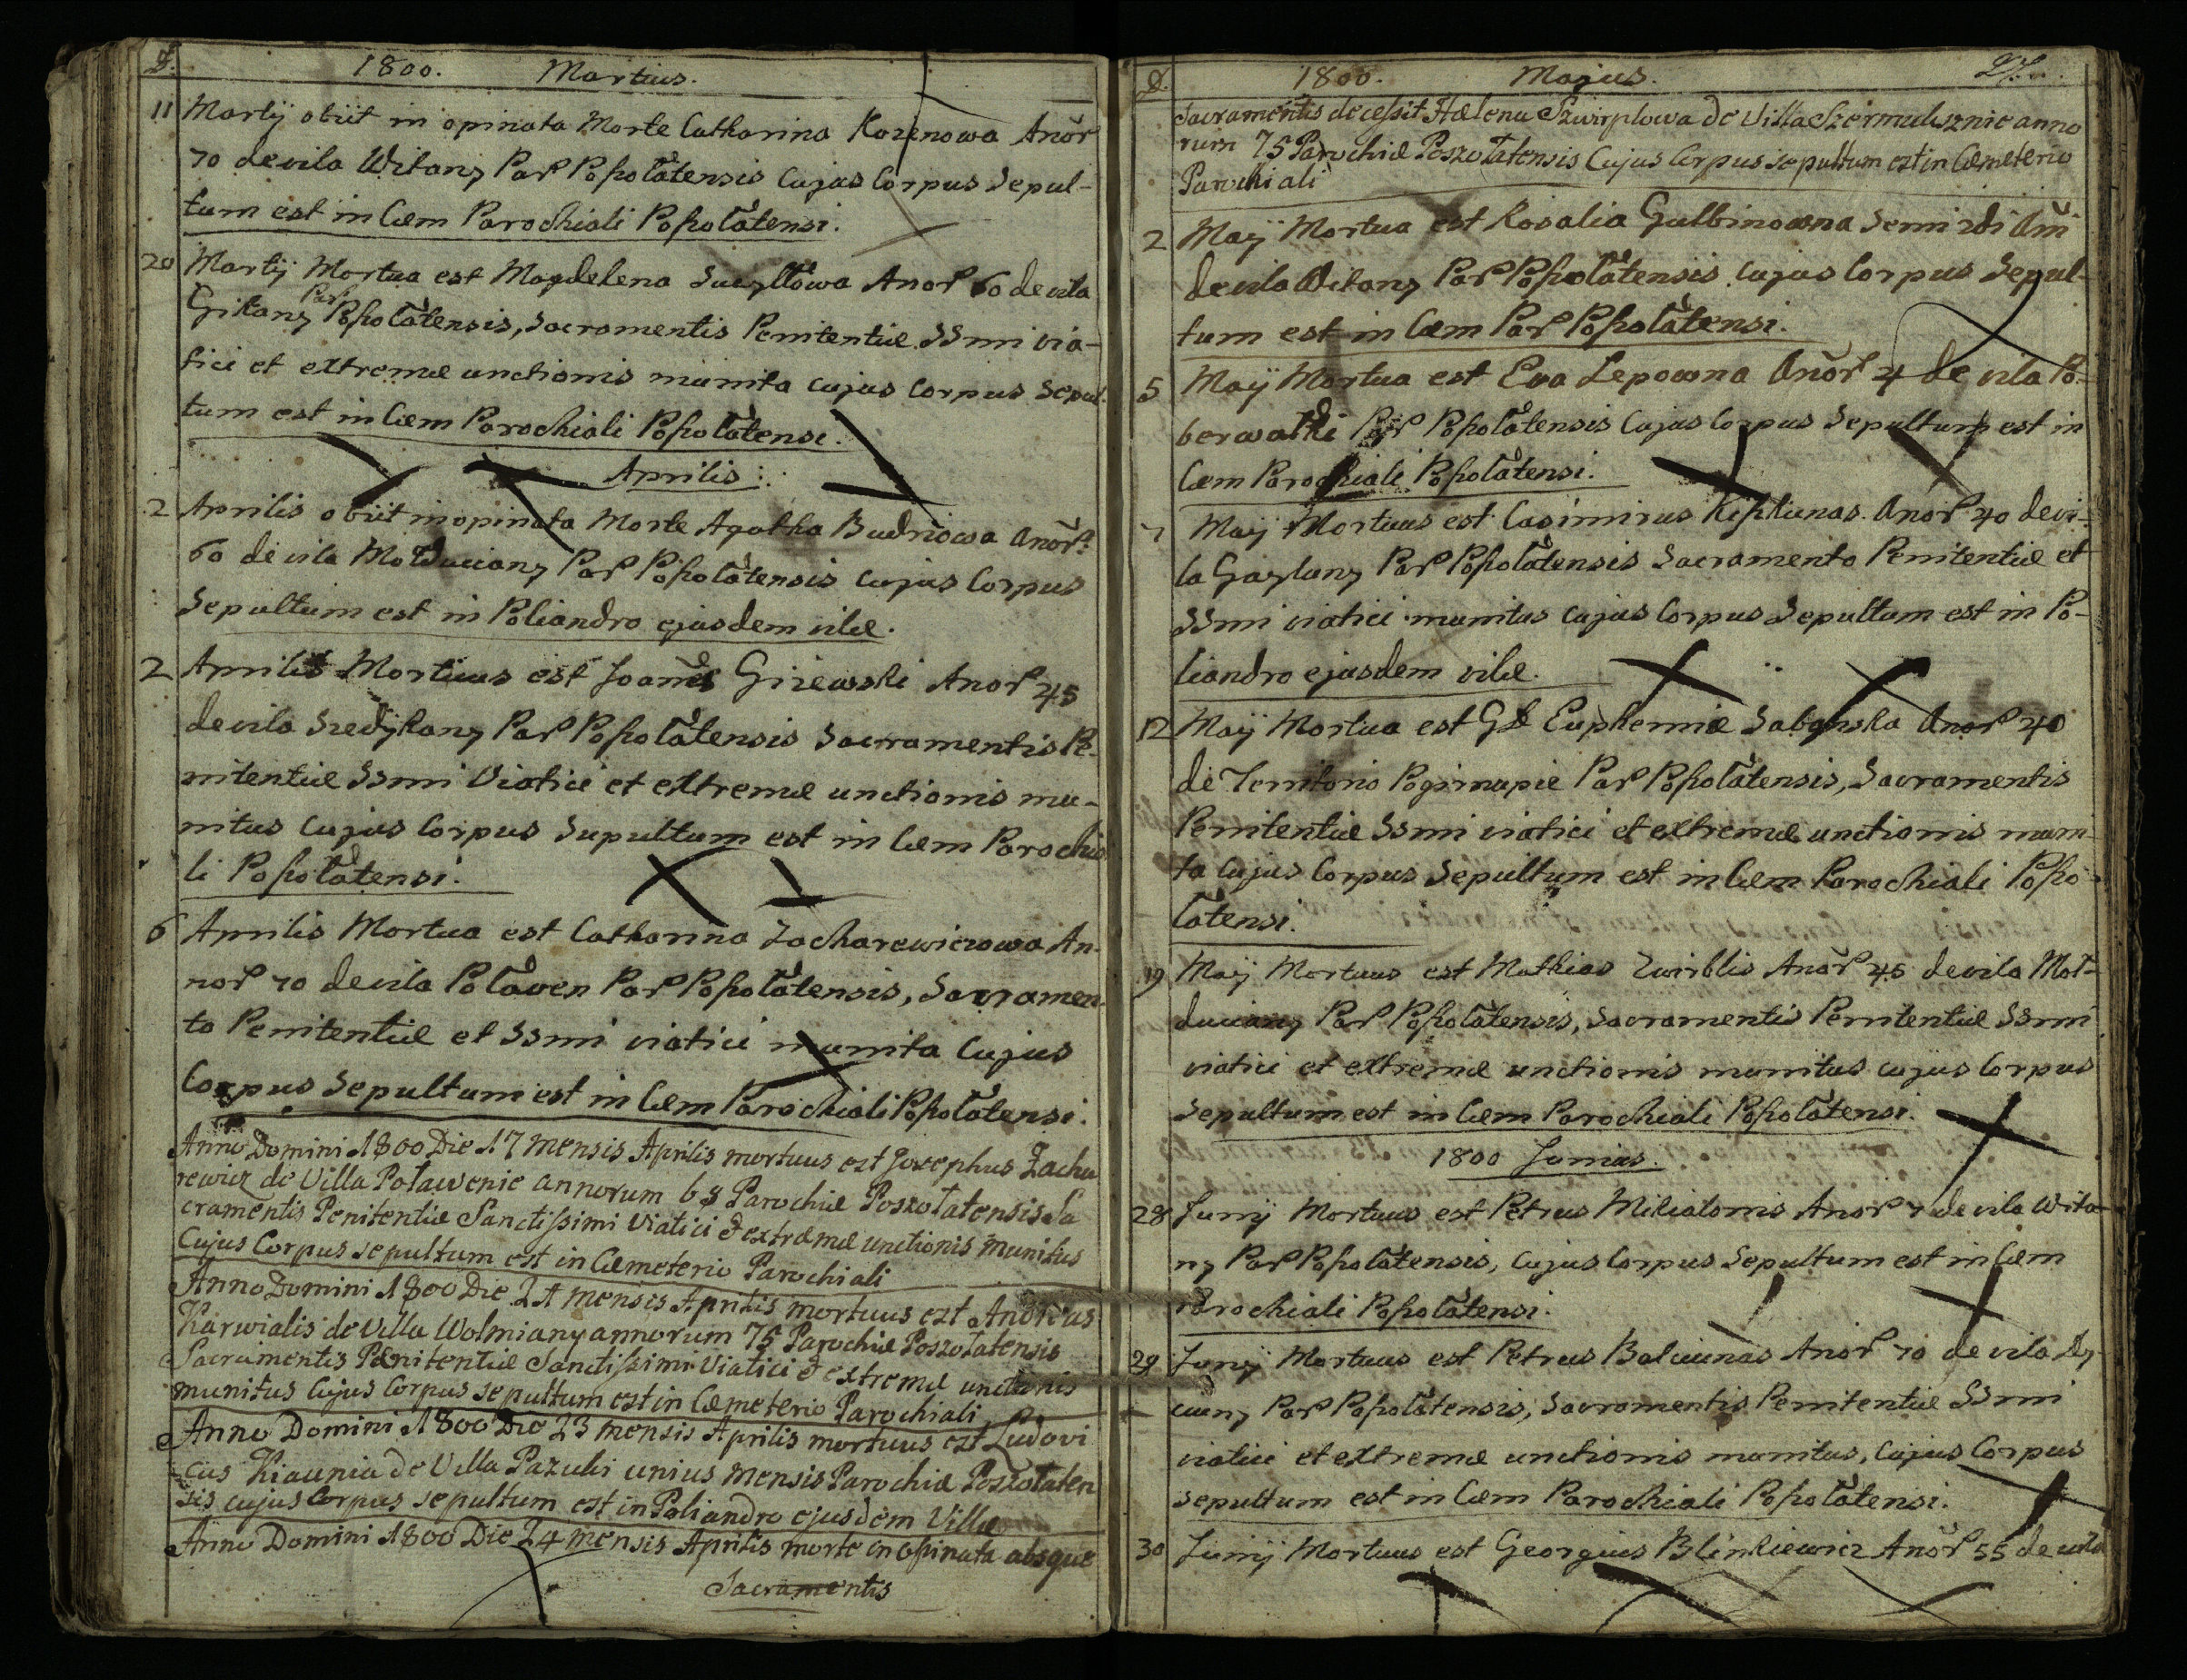 D. 1800. Martius.
11 Martij obiit in opinata Morte Catharina Kozenowa Anor
70 de vila Witany Par Poßolatensis cujus Corpus Sepul-
tum est in Cæm Parochiali Poßolatensi.
20 Martij Mortua est Magdelena Anor 60 de vila
Gitany Par Poßolatensis, Sacramentis Penitentiæ SSmi via-
tici et extremæ unctionis munita cujus Corpus Sepul-
tum est in Cæm Parochiali Poßolatensi.
Aprilis :
2 Aprilis obiit inopinata Morte Agatha Budriowa Anor
60 de vila Molduciany Par Poßolatensis cujus Corpus
Sepultum est in Poliandro ejusdem vilæ.
2 Aprilis Mortuus est Joannes Giżewski Anor 45
de vila Szedykany Par Poßolatensis Sacramentis Pe-
nitentiæ SSmi Viatici et extremæ unctionis mu-
nitus cujus Corpus Supultum est in Cæm Parochia
li Poßolatensi.
6 Aprilis Mortua est Catharina Zacharewiczowa An-
nor 70 de vila Polawen Par Poßolatensis, Sacramen-
to Penitentiæ et SSmi viatici munita Cujus
Corpus Sepultum est in Cæm Parochiali Poßolatensi.
Anno Domini 1800 Die 17 mensis Aprilis mortuus est Josephus Zacha
rewicz de Villa Poławenie annorum 68 Parochiæ Poszołatensis Sa
cramentis Penitentiæ Sanctißimi Viatici & extræmæ unctionis munitus
Cujus Corpus sepultum est in Cæmeterio Parochiali
Anno Domini 1800 Die 21 mensis Aprilis mortuus est Andreas
Karwialis de Villa Wolmiany annorum 75 Parochiæ Poszołatensis
Sacramentis Pœnitentiæ Sanctißimi Viatici & extremæ unctionis
munitus Cujus Corpus sepultum est in Cæmeterio Parochiali
Anno Domini 1800 Die 23 mensis Aprilis mortuus est Ludovi
cus Kiaunia de Villa Pazuki unius mensis Parochiæ Poszołaten
sis cujus Corpus sepultum est in Poliandro ejusdem Villæ
Anno Domini 1800 Die 24 mensis Aprilis morte inopinata absque
Sacramentis
D. 1800. Majus. 27.
Sacramentis deceßit Hælena Szwirplowa de Villa Szermuksznie anno
rum 75 Parochiæ Poszołatensis Cujus Corpus sepultum est in Cæmeterio
Parochiali
2 Maij Mortua est Rosalia Gulbinowna Semi 2di Ani
de vila Witany Par Poßolatensis cujus Corpus Sepul-
tum est in Cæm Par Poßolatensi.
5 Maij Mortua est Eva Lepowna Anor 4 de vila Po-
berwałki Par Poßolatensis Cujus Corpus Sepultum est in
Cæm Parochiali Poßolatensi.
7 Maij Mortuus est Casimirus Kißkunas Anor 40 de vi-
la Gayluny Par Poßolatensis Sacramento Penitentiæ et
SSmi viatici munitus cujus Corpus Sepultum est in Po-
liandro ejusdem vilæ.
12 Maij Mortua est Euphemiæ Sabanska Anor 40
de Territorio Pogirnupie Par Poßolatensis, Sacramentis
Penitentiæ SSmi viatici et extremæ unctionis muni-
ta cujus Corpus Sepultum est in Cæm Parochiali Poßo-
latensi.
19 Maij Mortuus est Mathias Zwirblis Anor 45 de vila Mol-
duciany Par Poßolatensis, Sacramentis Penitentiæ SSmi
viatici et extremæ unctionis munitus cujus Corpus
Sepultum est in Cæm Parochiali Poßolatensi.
1800 Junius.
28 Junij Mortuus est Petrus Mikialonis Anor 7 de vila Wita-
ny Par Poßolatensis, cujus Corpus Sepultum est in Cæm
Parochiali Poßolatensi.
29 Junij Mortuus est Petrus Balciunas Anor 70 de vila Dy-
ciuny Par Poßolatensis, Sacramentis Penitentiæ SSmi
viatici et extremæ unctionis munitus, cujus Corpus
sepultum est in Cæm Parochiali Poßolatensi.
30 Junij Mortuus est Georgius Blinkiewicz Anor 55 de vila